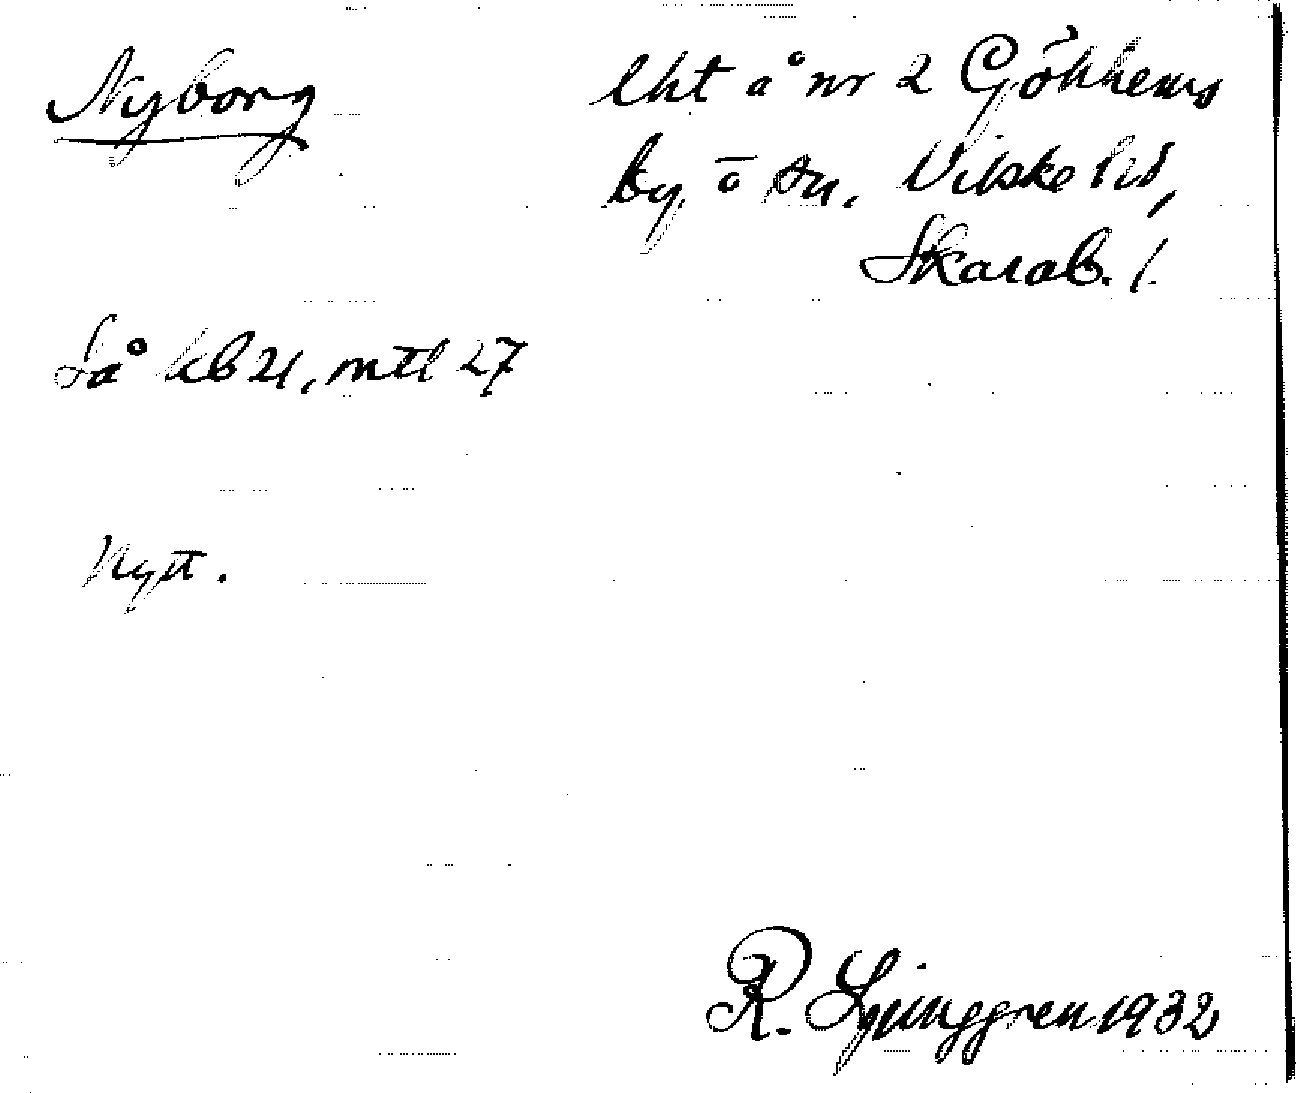 Nyborg
lht å nr 2 Gökhems
by o sn, Vilske hd,
Skarab. l.
Så kb 21, mtl 27
Nytt.
R. Ljunggren 1932